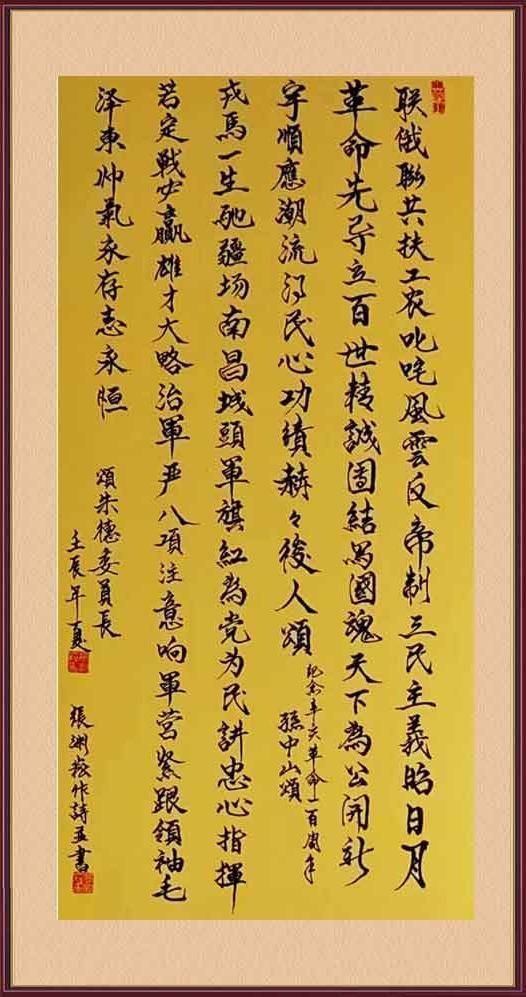 联俄聯共扶工农叱咤風雲反帝制三民主義昭日月
革命先导立百世精誠團结為國魂天下為公開新
宇順應潮流得民心功績赫々後人頌
纪念辛亥革命一百周年
孫中山頌
戎馬一生馳疆场南昌城頭軍旗紅為党为民讲忠心指揮
若定戰必贏雄才大略治軍严八項注意响軍营紧跟領袖毛
泽東帅氣永存志永恒
頌朱德委員長
壬辰年夏
張作詩并書